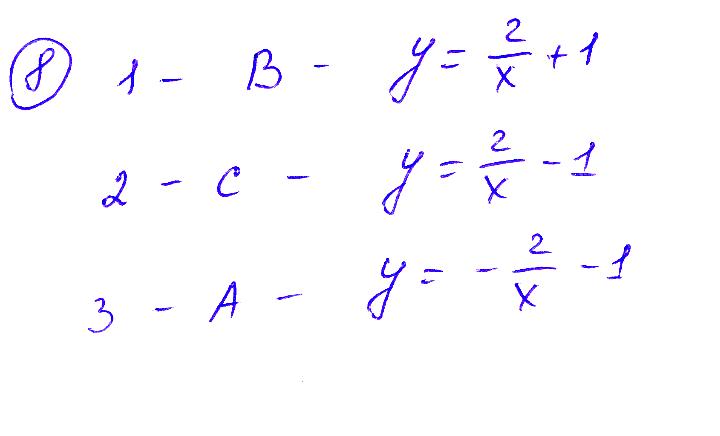 ⑧ 1 - B - y = 2/x + 1
2 - C - y = 2/x - 1
3 - A - y = - 2/x - 1